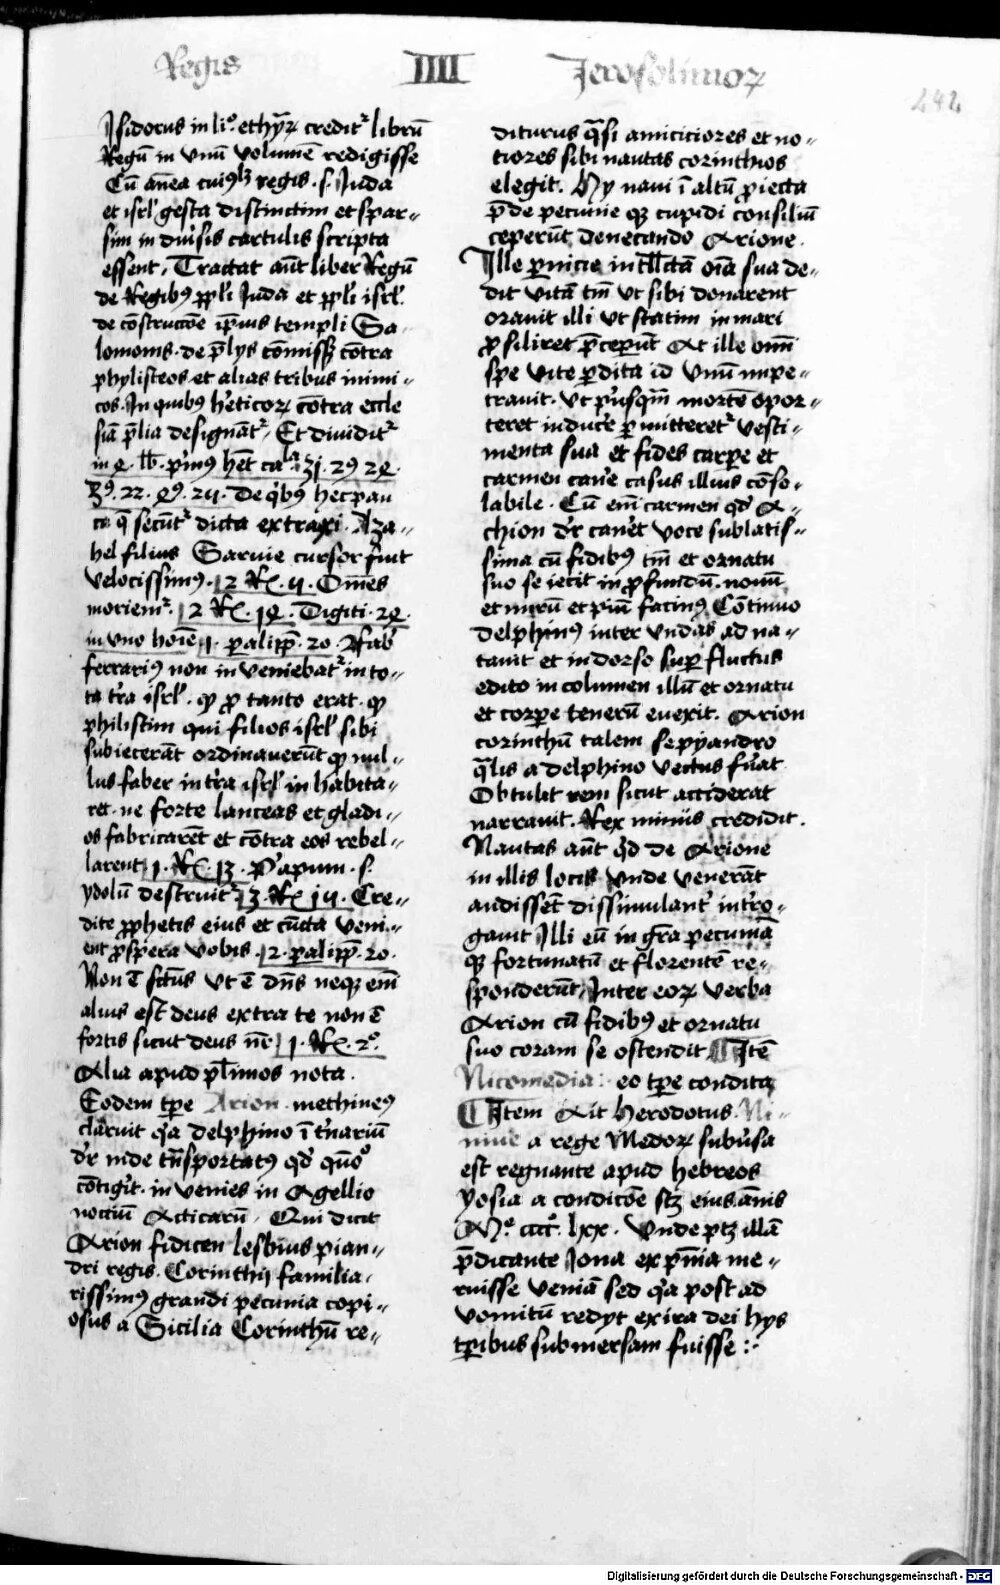 Regis IIII Jerosolimoꝝ
242
Isidorus in liº. ethyꝝ creditᷣ librū
Regū in vnū volumē redigisse
Cū anᷓea regis .s. Juda
et isrl' gesta distinctim et spar-
sim in diu'sis cartulis scripta
essent, Tractat aūt liber Regū
de Regibꝯ pp̄li Juda et pp̄li isrl'.
de cōstruccōe templi Sa-
lomonis . de p̄lys cōmissꝭ cōtra
phylisteos et alias tribus inimi-
cos. In quibꝯ h'eticoꝝ cōtra eccle
siā p̄lia designātᷣ, Et diuiditᷣ
in
de qᷓbꝯ hec pau
ca q̄ secūtᷣ dicta extraxi. Aza-
hel filius Saruie cursor fuit
velocissimꝯ. 2 Rͨ. 2. Om̄es
moriemᷣ. 2 Rͨ. 14. Digiti. 24.
in vno hoīe 1. paralipp̄. 20. Fab'
ferrariꝯ non inueniebatᷣ in to-
ta t'ra isrl'. ꝙ ꝓ tanto erat. ꝙ
philistim qui filios isrl' sibi
subiecerāt ordinauerūt ꝙ nul-
lus faber in t'ra isrl' inhabita-
ret. ne forte lanceas et gladi-
os fabricarēt et cōtra eos rebel-
larent 1. Rͨ. 13. P'apum .s.
ydolū destruitᷣ 3. Rͨ 15. Cre-
dite ꝓphetis eius et cūcta veni-
ent ꝓspera vobis. 2. paralipp̄. 20.
Non ē sctūs vt ē dn̄s neqꝫ em̄
alius est deus extra te non ē
fortis sicut deus nr̄ 1. Rͨ. 2º.
Alia apud pl'imos nota.
Eodem tp̄e Arion methineꝯ
claruit qᷓ a delphino ī t'nariū
d'r inde tn̄sportatꝯ qd' quōº
cōtigit. inuenies in Agellio
noctiū Atticarū, Qui dicit
Arion fidicen lesbius pian-
dri regis. Corinthij familia-
rissimꝯ grandi pecunia copi-
osus a Sicilia Corinthū re-
diturus qᷓsi amiciciores et no-
tiores sibi nautas corinthios
elegit. Hy naui ī altū ꝓiecta
p̄de pecunie qꝫ cupidi consiliū
ceperūt denecando Arione.
Ille ꝑnicie intll'cta oīa sua de-
dit vitā tm̄ vt sibi donarent
orauit illi vt statim in mari
ꝓsiliret p̄ceperūt At ille omī
spe vite ꝑdita id vnū impe-
trauit. vt p'usqᷓm mortē opor-
teret induc'e ꝑmitteretᷣ vesti-
menta sua et fides carpe et
carmen can'e casus illius cōso-
labile. Cū em̄ carmen qd' A-
chion d'r can'et voce sublatis-
sima cū fidibꝯ tm̄ et ornatu
suo se iecit in ꝓfundū. nouū
et mirū et piū facinꝯ Cōtinuo
delphinꝯ inter vndas ad na-
tauit et in dorso suꝑ fluctus
edito incolumen illū et ornatu
et corꝑe tenerū euexit. Arion
corinthū talem se pyandro
qᷓlis a delphino vectus fu'at
Obtulit rem sicut acciderat
narrauit. Rex minus credidit.
Nautas aūt qd' de Arione
in illis locis vnde venerāt
audissēt dissimulant' int'ro-
gauit Illi eū in gr̄a pecuniā
qꝫ fortunatū et florentē re-
sponderūt, Inter eoꝝ verba
Arion cū fidibꝯ et ornatu
suo coram se ostendit ¶Itē
Nicomedia: eo tp̄e condita
¶Item Ait herodotus. Ni-
niue a rege Medoꝝ subu'sa
est regnante apud hebreos
yosia a condicōe eius ānis
Mº. ccccº. lxx. vnde ptꝫ illā
p̄dicante Jona ex pn̄ia me-
ruisse veniā sed qᷓ post ad
vomitū redyt ex ira dei hys
tꝑibus submersam fuisse :·
Digitalisierung gefördert durch die Deutsche Forschungsgemeinschaft - DFG